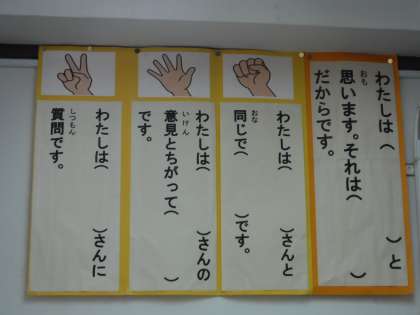 わたしは（　　　）と
思います。それは（　　　）
だからです。
わたしは（　　　）さんと
同じで（　　　）です。
わたしは（　　　）さんの
意見とちがって（　　　）
です。
わたしは（　　　）さんに
質問です。